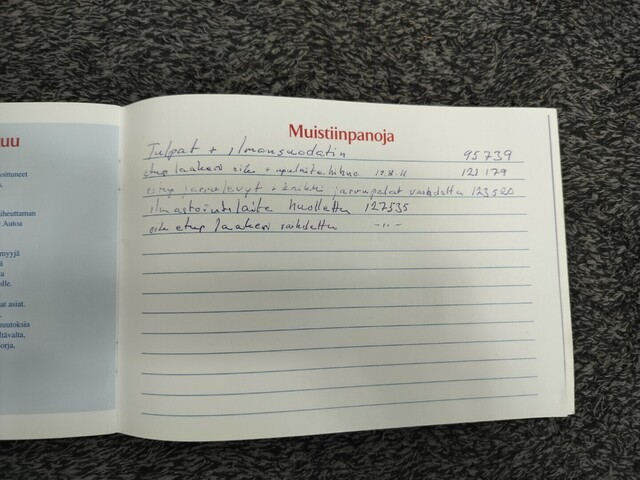 uu
oittuneet
iheuttaman
Autoa
myyjä
ä
a
olle.
at asiat.
muutoksia
ltävalta,
orja,
Muistiinpanoja
Tulpat + ilmansuodatin 95739
etup laakeri oike + 12.8.11 121 179
etup jarrulevyt + jarrupalat vaihdettu 123520
ilmastointilaite huollettu 127535
oik etup laakeri vaihdettu -"-